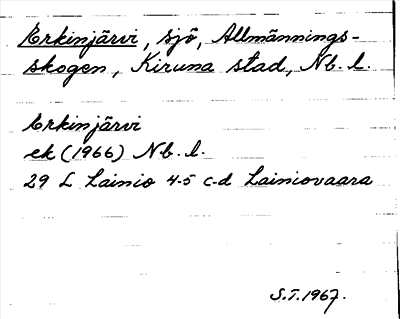 Erkinjärvi, sjö, Allmännings-
skogen, Kiruna stad, Nb. l.
Erkinjärvi
ek (1966) Nb. l.
29 L Lainio 4-5 c-d Lainiovaara
S.T. 1967.